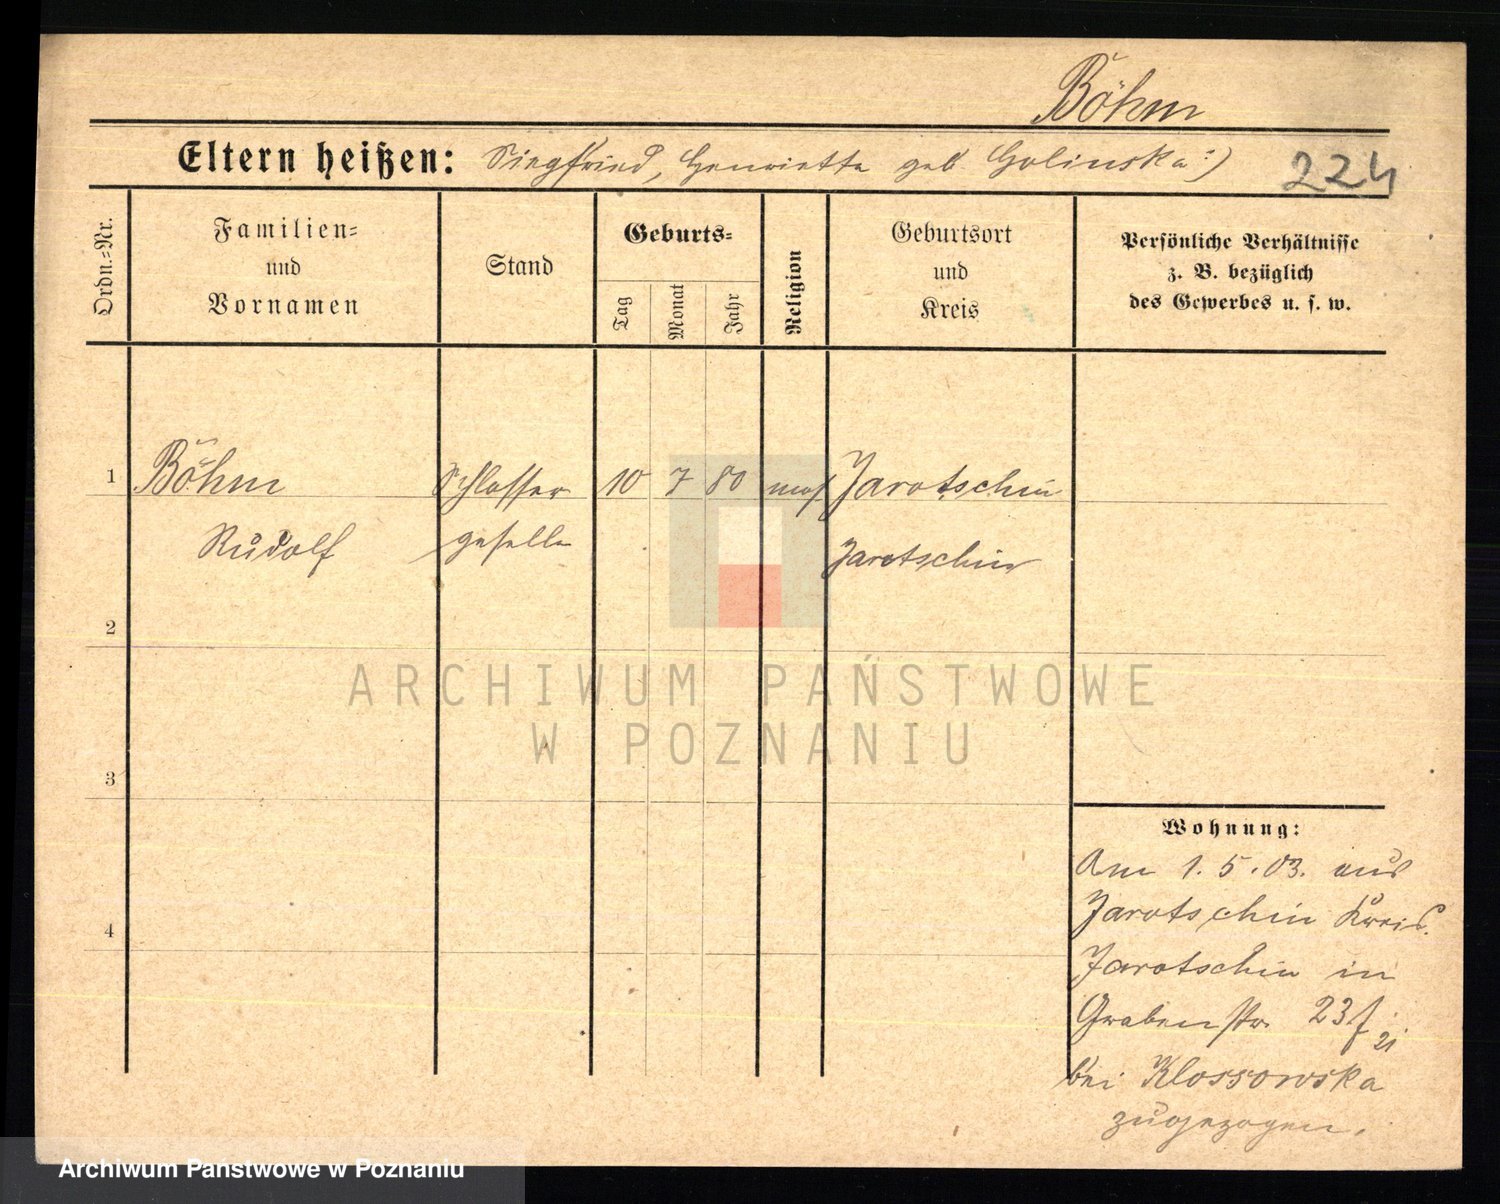 Böhm
Eltern heißen: Siegfried, Henriette geb Golinska :)
224
Ordn.-Nr.
Familien-
und
Vornamen
Stand
Geburts-
Tag
Monat
Jahr
Religion
Geburtsort
und
Kreis
Persönliche Verhältnisse
z. B. bezüglich
des Gewerbes u. s. w.
1
Böhm
Schlosser
10
7
80
mos
Jarotschin
Rudolf
geselle
Jarotschin
2
ARCHIWUM PAŃSTWOWE
W POZNANIU
3
4
Wohnung:
Am 1. 5. 03. aus
Jarotschin Kreis.
Jarotschin in
Grabenstr. 23
bei Klossowska
zugezogen.
Archiwum Państwowe w Poznaniu